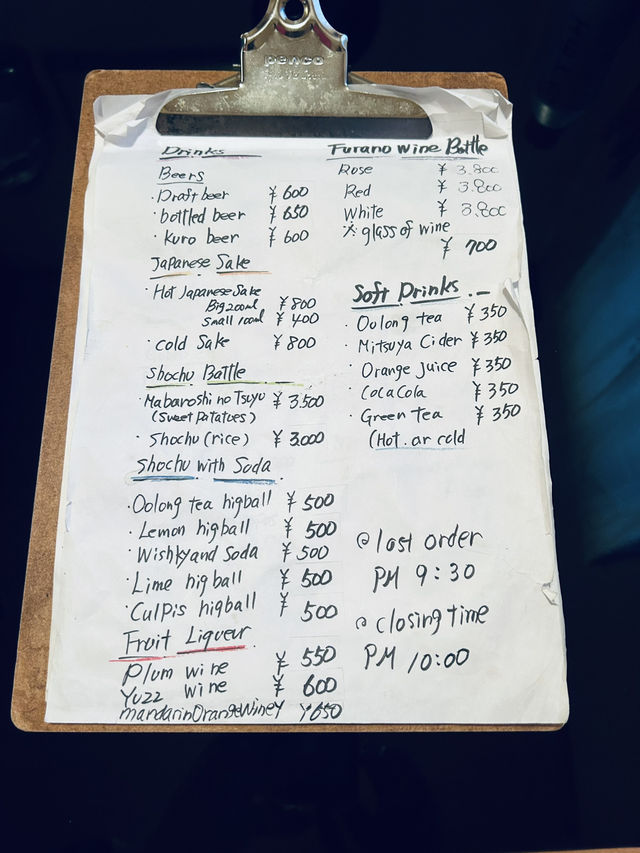 penco
Drinks
Beers
・Draft beer ¥600
・bottled beer ¥650
・Kuro beer ¥600
Japanese Sake
・Hot Japanese Sake
Big 200ml ¥800
Small 100ml ¥400
・cold Sake ¥800
Shochu Battle
・Mabaroshi no Tsuyu ¥3.500
(Sweet Patatoes)
・Shochu (rice) ¥3.000
Shochu with Soda
・Oolong tea higball ¥500
・Lemon higball ¥500
・Wishky and Soda ¥500
・Lime higball ¥500
・CulPis higball ¥500
Fruit Liqueur.
Plum wine ¥550
Yuzz wine ¥600
mandarin Orange Wine Y Y650
Furano Wine Battle
Rose ¥3.800
Red ¥3.800
White ¥3.800
※ glass of wine
¥700
Soft Drinks.
・Oolong tea ¥350
・Mitsuya Cider ¥350
・Orange Juice ¥350
・CocaCola ¥350
・Green tea ¥350
(Hot. or cold
@ last order
PM 9:30
@ closing time
PM 10:00